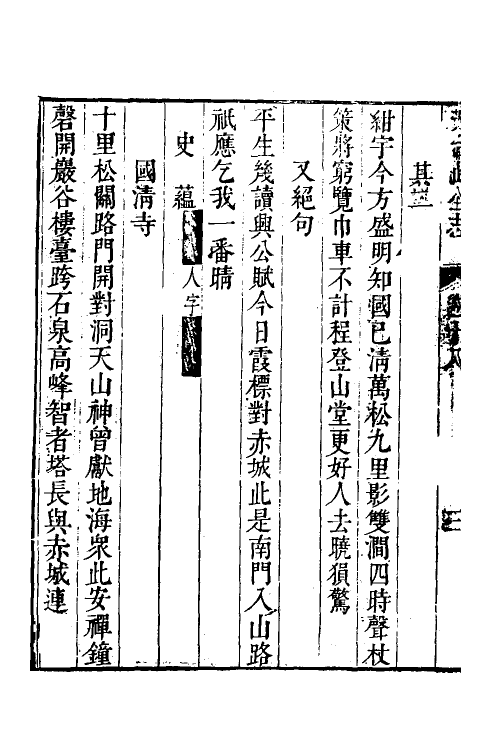 其三
紺宇今方盛明知國已清萬松九里影雙澗四時聲杖
策將窮覽巾車不計程登山堂更好人去曉猿驚
又絕句
平生幾讀興公賦今日霞標對赤城此是南門入山路
祇應乞我一番晴
史蘊 人字
國清寺
十里松關路門開對洞天山神曾獻地海眾此安禪鐘
磬開巖谷樓臺跨石泉高峰智者塔長與赤城連